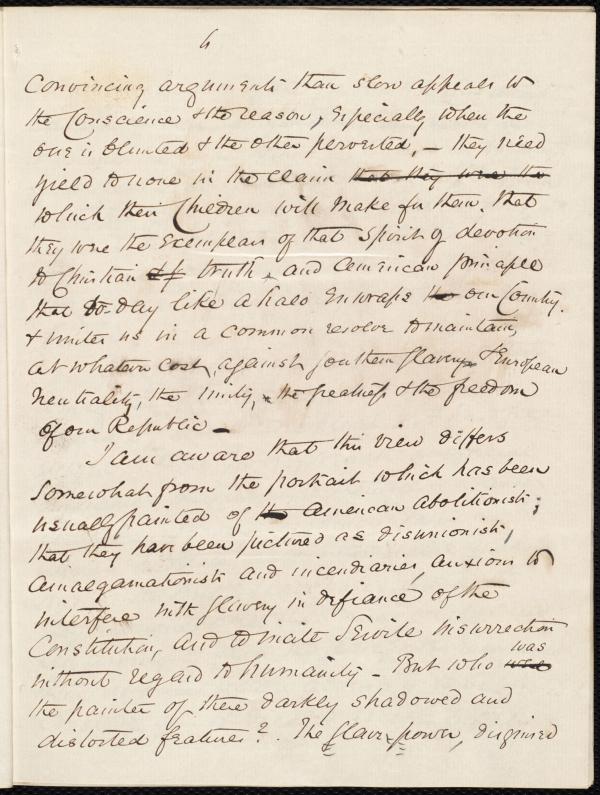 6
Convincing arguments than slow appeals to
the Conscience & the reason, Especially when the
one is blunted & the other perverted, — they need
yield to none in the claim that they were the
which their Children will make for them. That
they were the Exemplars of that Spirit of devotion
to Christian truth, and American principle
that to-day like a halo Enwraps our Country.
& unites us in a common resolve to maintain,
at whatever cost, against Southern Slavery & European
Neutrality, the Unity, the greatness & the freedom
of our Republic —
I am aware that this view differs
somewhat from the portrait which has been
usually painted of the American abolitionists;
that they have been pictured as disunionists,
amalgamationists and incendiaries, anxious to
interfere with Slavery in defiance of the
Constitution, and to incite Servile insurrection
without regard to humanity — But who were was
the painter of these darkly shadowed and
distorted features? The Slave-power, disguised